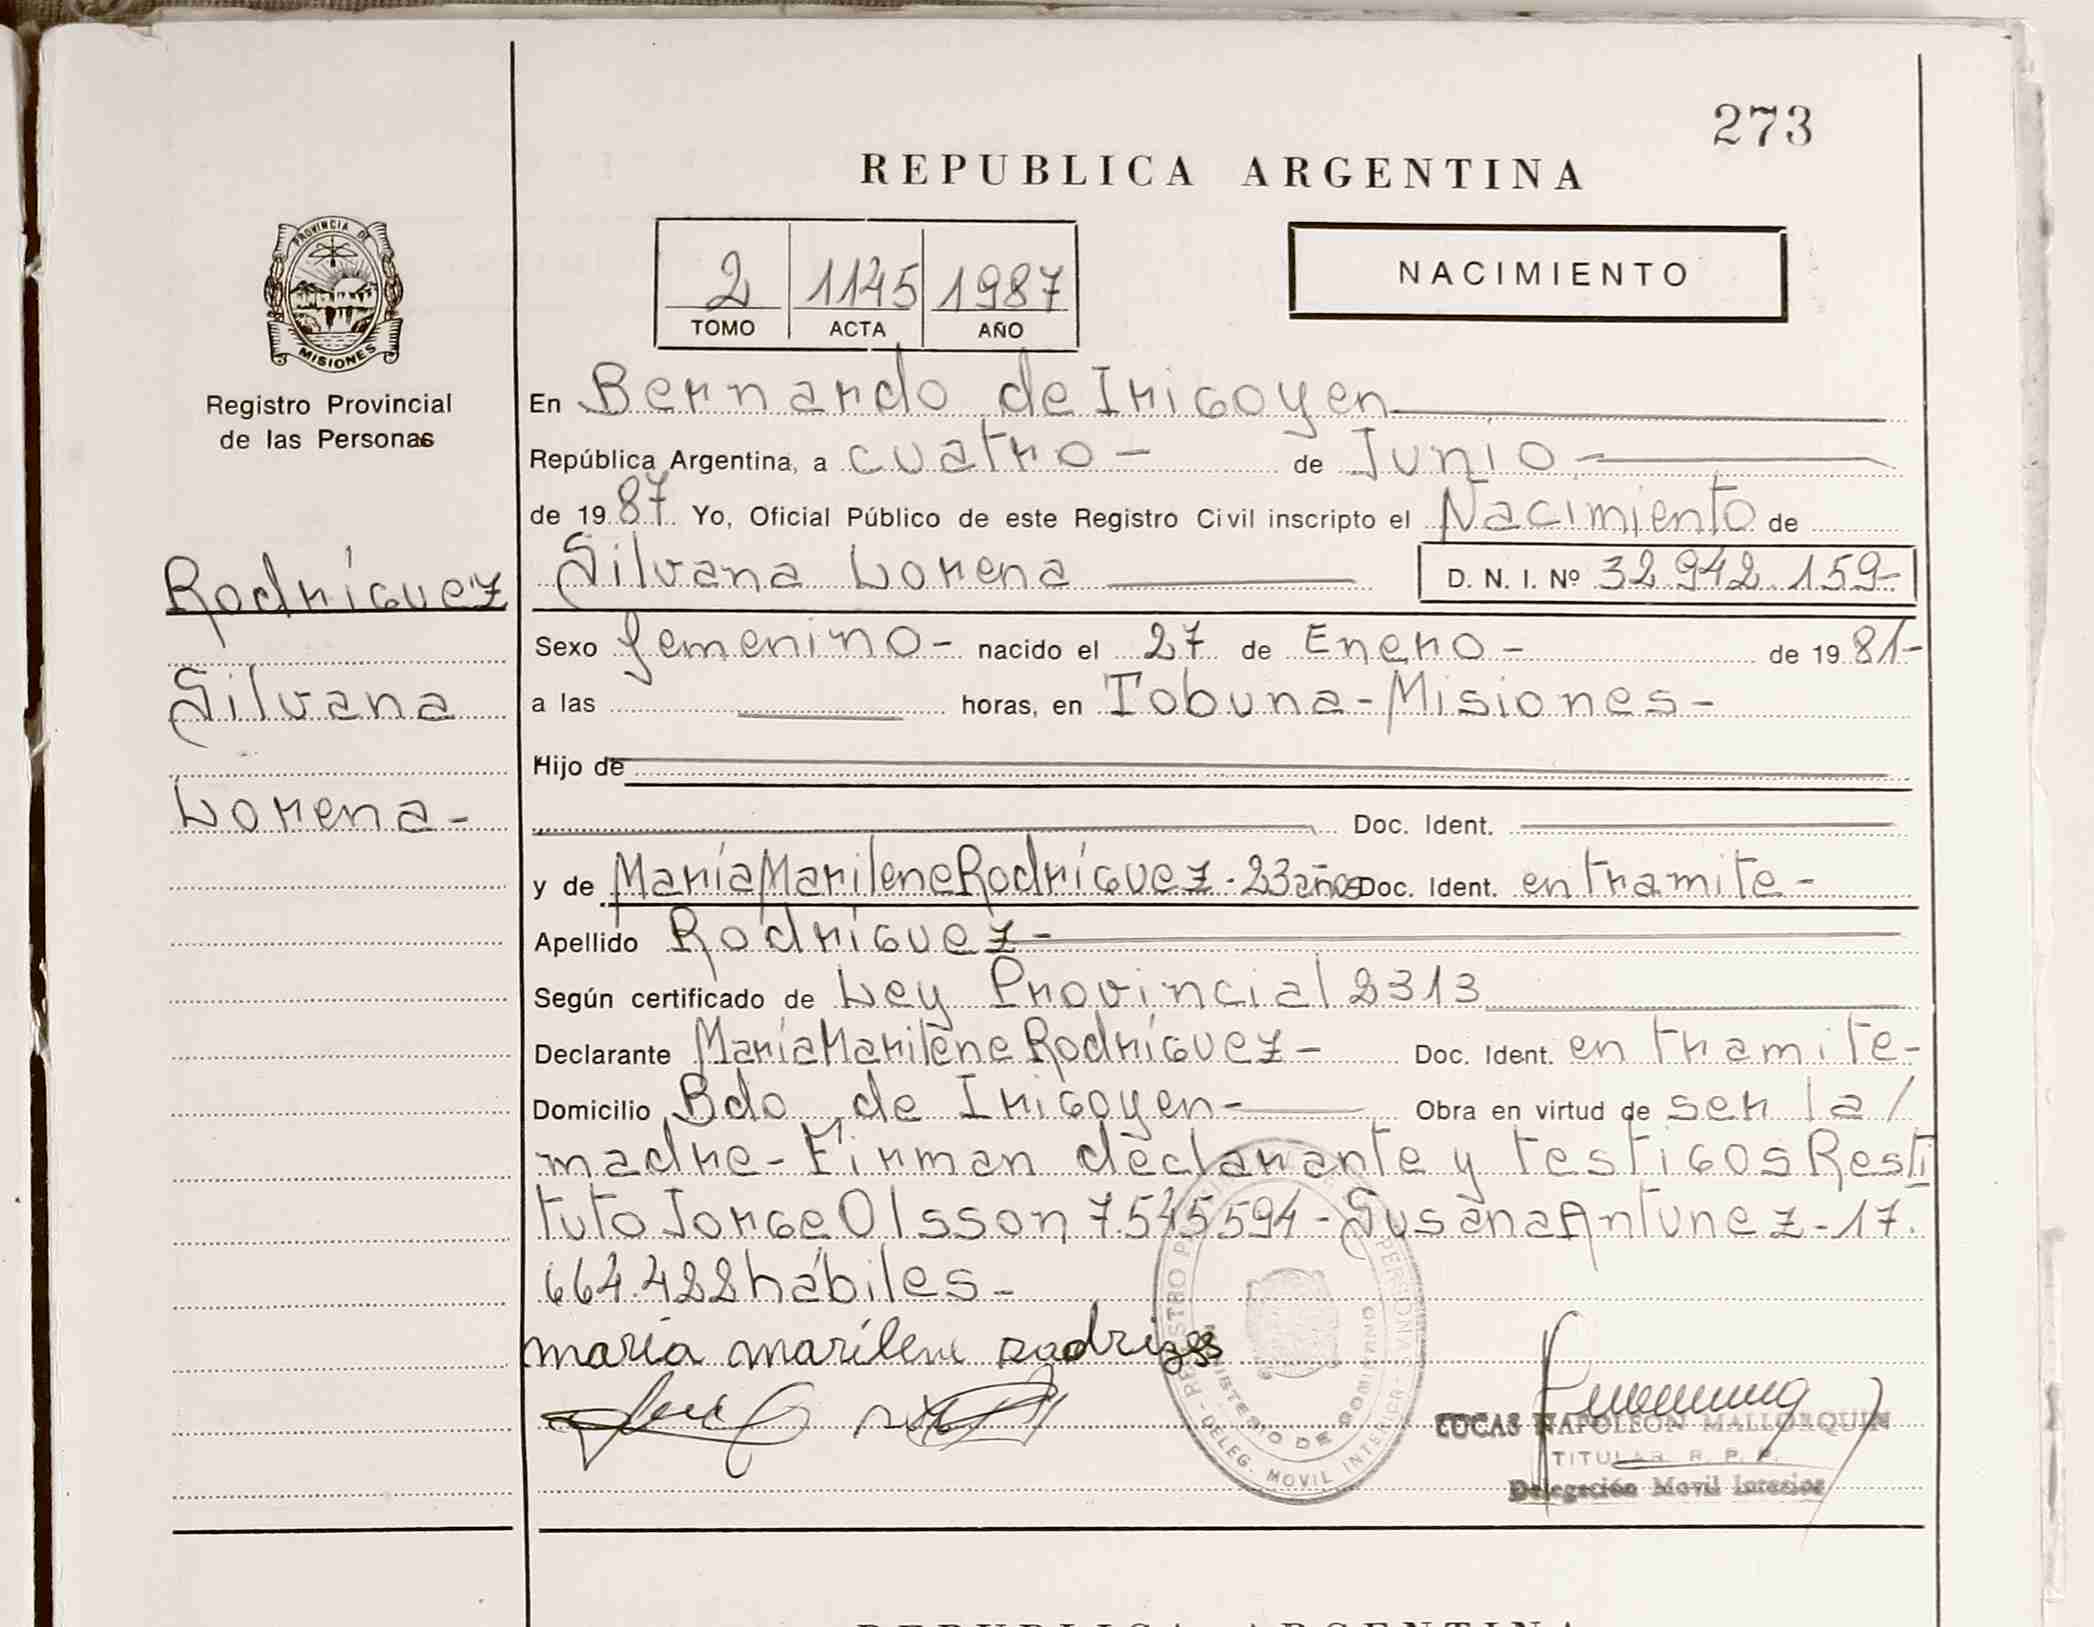 273
REPUBLICA ARGENTINA
PROVINCIA DE
MISIONES
Registro Provincial
de las Personas
2 1145 1987
TOMO ACTA AÑO
NACIMIENTO
En Bernardo de Irigoyen
República Argentina, a cuatro - de Junio -
de 1987. Yo, Oficial Público de este Registro Civil inscripto el Nacimiento de
Rodríguez
Silvana
Lorena-
Silvana Lorena D. N. I. Nº 32.942.159-
Sexo femenino- nacido el 27 de Enero - de 1981-
a las horas, en Tobuna-Misiones-
Hijo de
Doc. Ident.
y de María Marilene Rodríguez - 23 años Doc. Ident. en tramite -
Apellido Rodríguez -
Según certificado de Ley Provincial 2313
Declarante María Marilene Rodríguez - Doc. Ident. en tramite-
Domicilio Bdo de Irigoyen- Obra en virtud de ser la/
madre- Firman declarante y testigos Resti
tuto Jorge Olsson 7.545594 - Susana Antunez - 17.
664.422 hábiles -
maria marilene
REGISTRO PERSONAS
MINISTERIO DE GOBIERNO
DELEG. MOVIL INTERIOR
LUCAS NAPOLEON MALLORQUIN
TITULAR R. P. P.
Delegación Movil Interior
REPUBLICA ARGENTINA